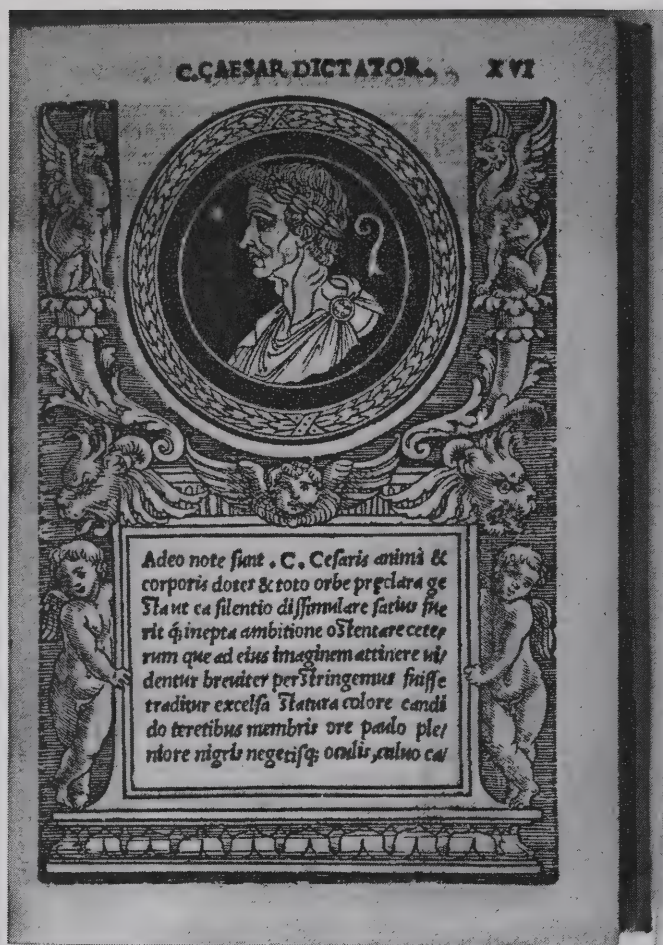 C. CAESAR DICTATOR. XVI
Adeo note sunt . C. Cesaris animi &
corporis dotes & toto orbe pręclara ge
sta ut ea silentio dissimulare satius fue
rit q̃ inepta ambitione ostentare cete/
rum que ad eius imaginem attinere ui/
dentur breuiter perstringemus fuisse
traditur excelsa statura colore candi
do teretibus membris ore paulo ple/
niore nigris uegetisq; oculis, caluo ca/